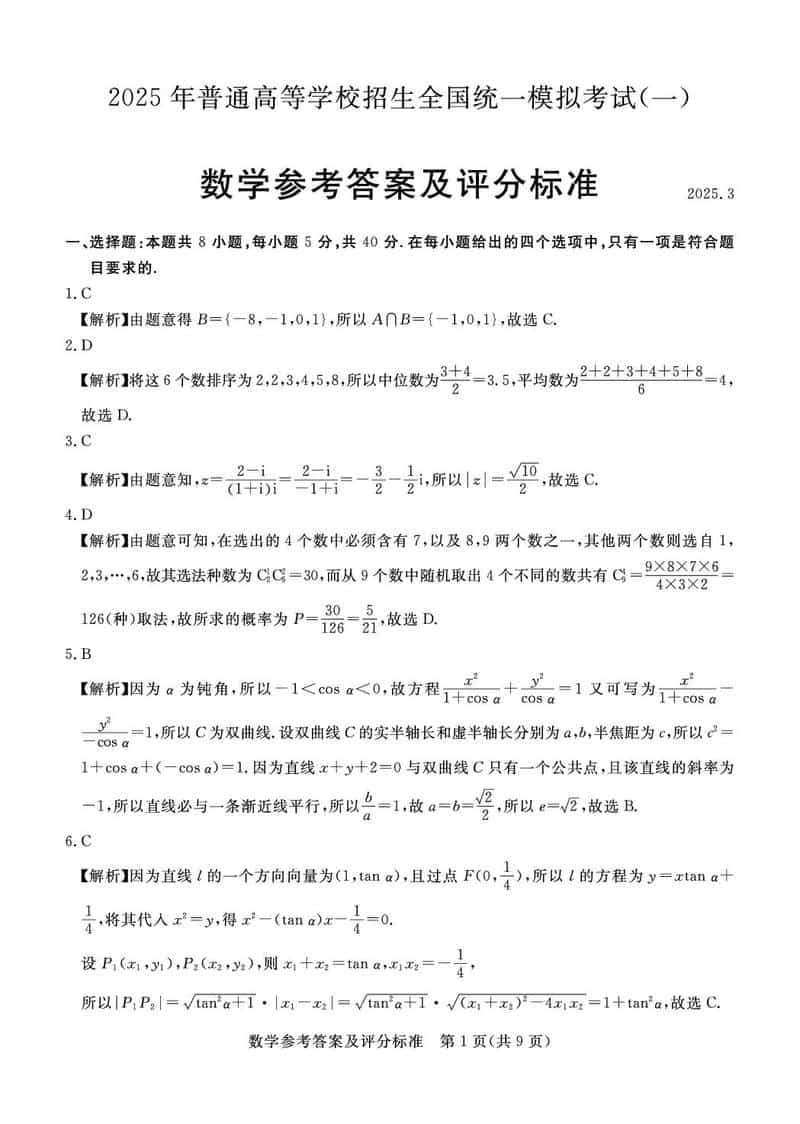 2025 年普通高等学校招生全国统一模拟考试(一)
数学参考答案及评分标准 2025.3
一、选择题:本题共 8 小题,每小题 5 分,共 40 分.在每小题给出的四个选项中,只有一项是符合题
目要求的.
1. C
【解析】由题意得 B={-8,-1,0,1},所以 A∩B={-1,0,1},故选 C.
2. D
【解析】将这 6 个数排序为 2,2,3,4,5,8,所以中位数为\frac{3+4}{2}=3.5,平均数为\frac{2+2+3+4+5+8}{6}=4,
故选 D.
3. C
【解析】由题意知,z=\frac{2-i}{(1+i)i}=\frac{2-i}{-1+i}=-\frac{3}{2}-\frac{1}{2}i,所以|z|=\frac{\sqrt{10}}{2},故选 C.
4. D
【解析】由题意可知,在选出的 4 个数中必须含有 7,以及 8,9 两个数之一,其他两个数则选自 1,
2,3,…,6,故其选法种数为 C_2^1C_6^2=30,而从 9 个数中随机取出 4 个不同的数共有 C_9^4=\frac{9×8×7×6}{4×3×2}=
126(种)取法,故所求的概率为 P=\frac{30}{126}=\frac{5}{21},故选 D.
5. B
【解析】因为 α 为钝角,所以-1<cos α<0,故方程\frac{x²}{1+cos α}+\frac{y²}{cos α}=1 又可写为\frac{x²}{1+cos α}-
\frac{y²}{-cos α}=1,所以 C 为双曲线.设双曲线 C 的实半轴长和虚半轴长分别为 a,b,半焦距为 c,所以 c²=
1+cos α+(-cos α)=1.因为直线 x+y+2=0 与双曲线 C 只有一个公共点,且该直线的斜率为
-1,所以直线必与一条渐近线平行,所以\frac{b}{a}=1,故 a=b=\frac{\sqrt{2}}{2},所以 e=\sqrt{2},故选 B.
6. C
【解析】因为直线 l 的一个方向向量为(1,tan α),且过点 F(0,\frac{1}{4}),所以 l 的方程为 y=xtan α+
\frac{1}{4},将其代入 x²=y,得 x²-(tan α)x-\frac{1}{4}=0.
设 P₁(x₁,y₁),P₂(x₂,y₂),则 x₁+x₂=tan α,x₁x₂=-\frac{1}{4},
所以|P₁P₂|=\sqrt{tan²α+1}·|x₁-x₂|=\sqrt{tan²α+1}·\sqrt{(x₁+x₂)²-4x₁x₂}=1+tan²α,故选 C.
数学参考答案及评分标准 第 1 页(共 9 页)